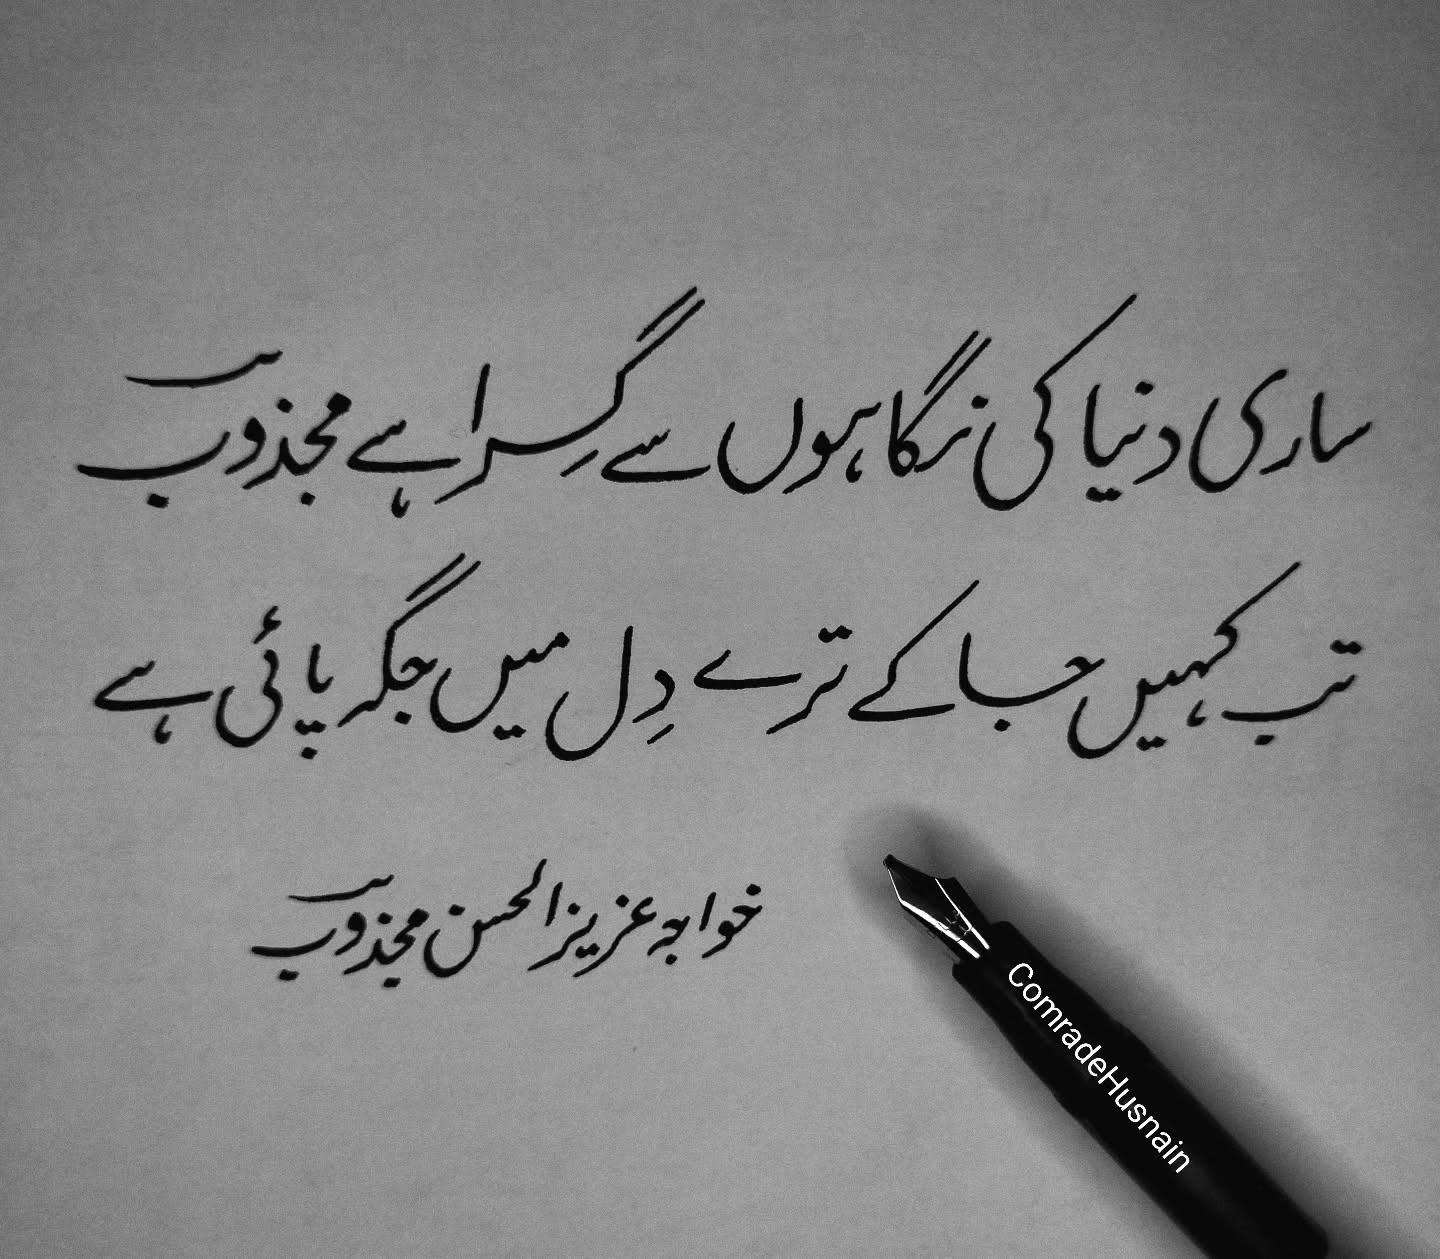 ساری دنیا کی نگاہوں سے گِرا ہے مجذوبؔ
تب کہیں جا کے ترے دِل میں جگہ پائی ہے
خواجہ عزیز الحسن مجذوبؔ
ComradeHusnain